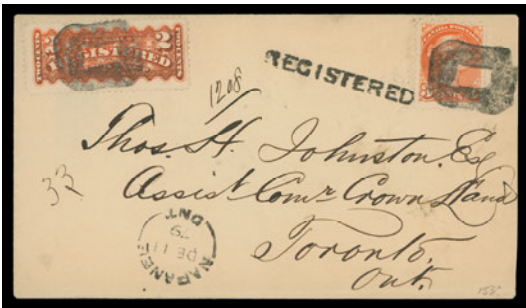 2 REGISTERED 2
REGISTERED
1208
Thos. H. Johnston. Esq
Assist Comr Crown Lands
Toronto.
Ont.
33
NAPANEE
DE 11
79
ONT
155.